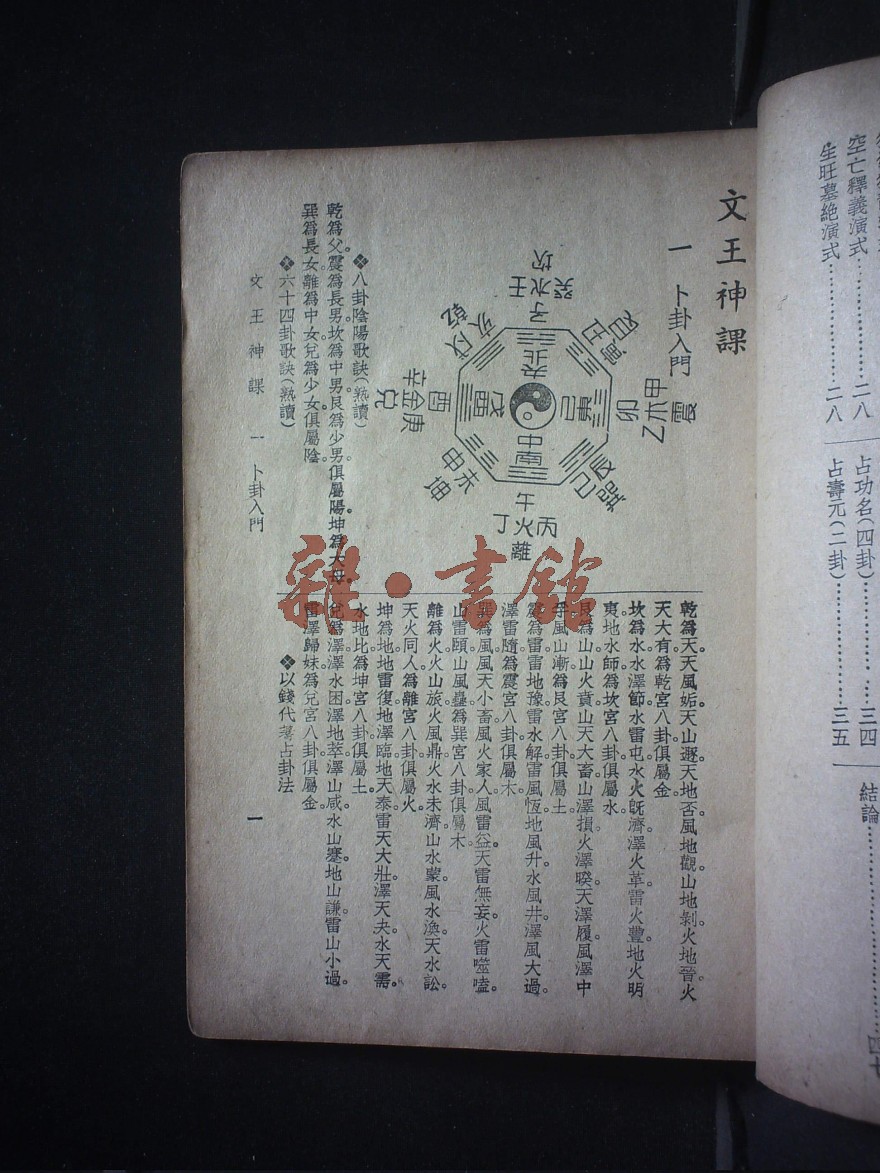 文王神課
一 卜卦入門
坎
癸水壬
子
乾
亥
戌
兌
辛金庚
酉
坤
申
未
午
丁火丙
離
巳
辰
震
甲木乙
卯
❖八卦陰陽歌訣(熟讀)
乾爲父。震爲長男。坎爲中男。艮爲少男。俱屬陽。坤爲大母。
巽爲長女。離爲中女。兌爲少女。俱屬陰。
❖六十四卦歌訣(熟讀)
乾爲天。天風姤。天山遯。天地否。風地觀。山地剝。火地晉。火
天大有。爲乾宮八卦。俱屬金。
坎爲水。水澤節。水雷屯。水火旣濟。澤火革。雷火豐。地火明
夷。地水師。爲坎宮八卦。俱屬水。
艮爲山。山火賁。山天大畜。山澤損。火澤暌。天澤履。風澤中
孚。風山漸。爲艮宮八卦。俱屬土。
爲雷。雷地豫。雷水解。雷風恆。地風升。水風井。澤風大過。
澤雷隨。爲震宮八卦。俱屬木。
巽爲風。風天小畜。風火家人。風雷益。天雷無妄。火雷噬嗑。
山雷頤。山風蠱。爲巽宮八卦。俱屬木。
離爲火。火山旅。火風鼎。火水未濟。山水蒙。風水渙。天水訟。
天火同人。爲離宮八卦。俱屬火。
坤爲地。地雷復。地澤臨。地天泰。雷天大壯。澤天夬。水天需。
水地比。爲坤宮八卦。俱屬土。
兌爲澤。澤水困。澤地萃。澤山咸。水山蹇。地山謙。雷山小過。
雷澤歸妹。爲兌宮八卦。俱屬金。
❖以錢代蓍占卦法
文王神課 一 卜卦入門
一
空亡釋義演式……二八
生旺墓絕演式……二八
占功名(四卦)……三四
占壽元(二卦)……三五
結論……四七
雜·書館